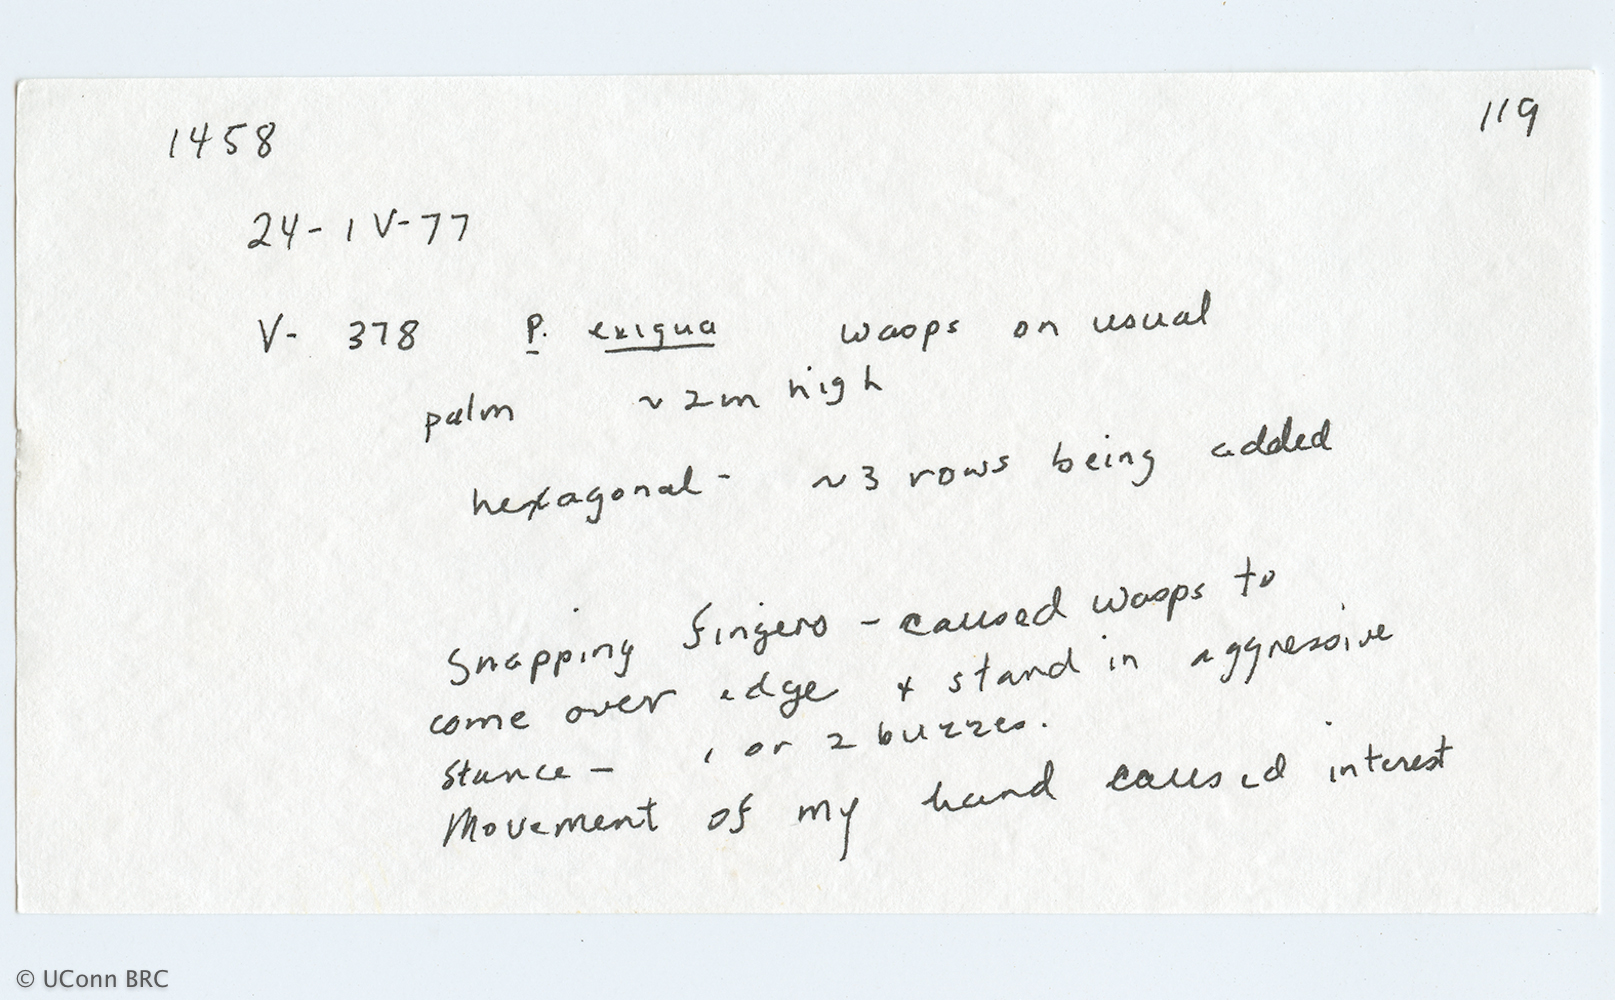 1458
119
24-IV-77
V- 378 P. exigua wasps on usual
palm ~ 2m high
hexagonal - ~3 rows being added
Snapping fingers - caused wasps to
come over edge + stand in aggressive
stance - 1 or 2 buzzes.
Movement of my hand caused interest
© UConn BRC